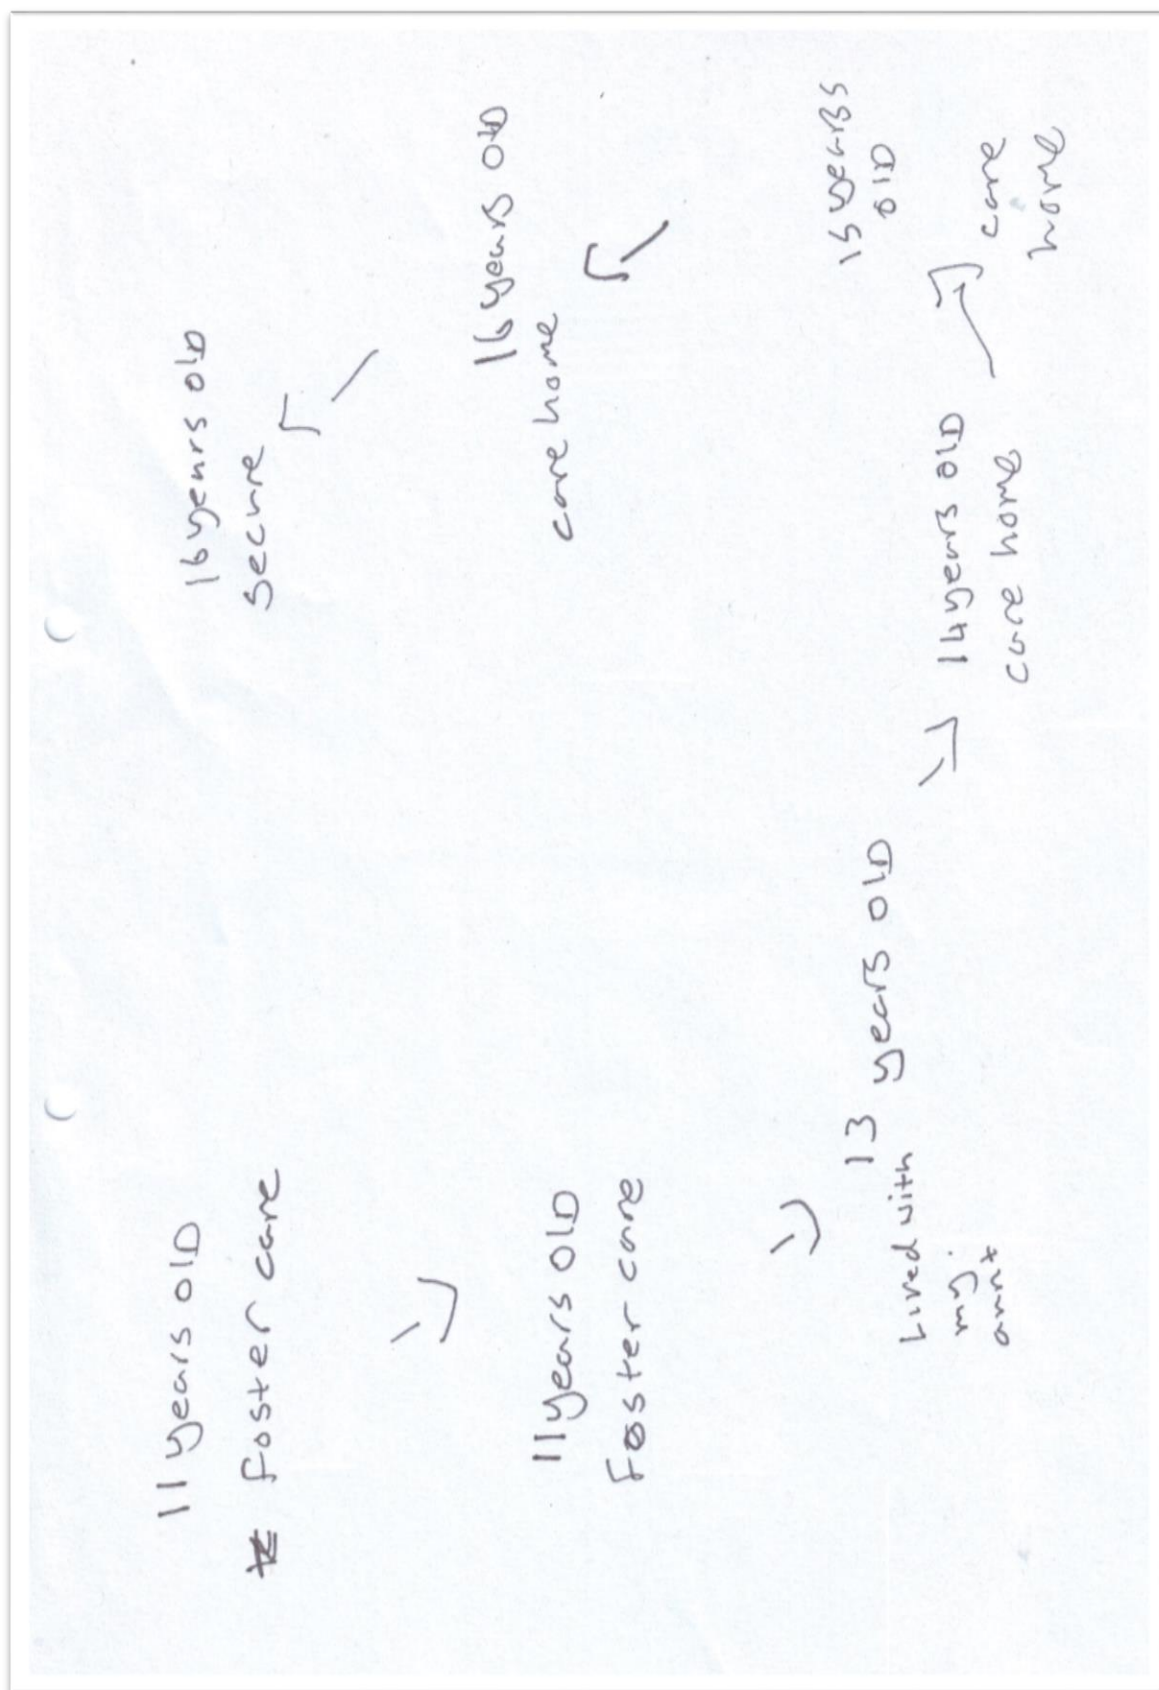 11 years OLD
foster care
11 years OLD
Foster care
13 years OLD
Lived with
my
aunt
14 years OLD
care home
15 years
OLD
care
home
16 years OLD
care home
16 years old
secure